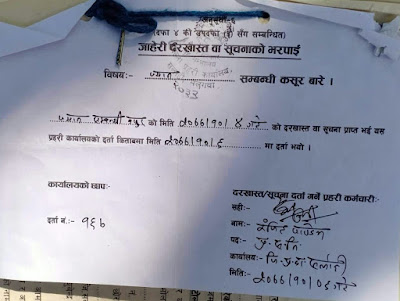 अनुसूची-६
(दफा ४ को उपदफा (१) सँग सम्बन्धित)
जाहेरी दरखास्त वा सूचनाको भरपाई
विषय:- ज्यान सम्बन्धी कसूर बारे ।
ज्यान सम्बन्धी कसूर को मिति २०६६।१०।४ गते को दरखास्त वा सूचना प्राप्त भई यस
प्रहरी कार्यालयको दर्ता किताबमा मिति २०६६।१०।६ मा दर्ता भयो ।
कार्यालयको छाप:
दरखास्त/सूचना दर्ता गर्ने प्रहरी कर्मचारी:
सही:-
दर्ता नं.:- १६७
नाम:-
पद:- प्र.
कार्यालय:- जि.प्र.का.
मिति:- २०६६।१०।०६ गते